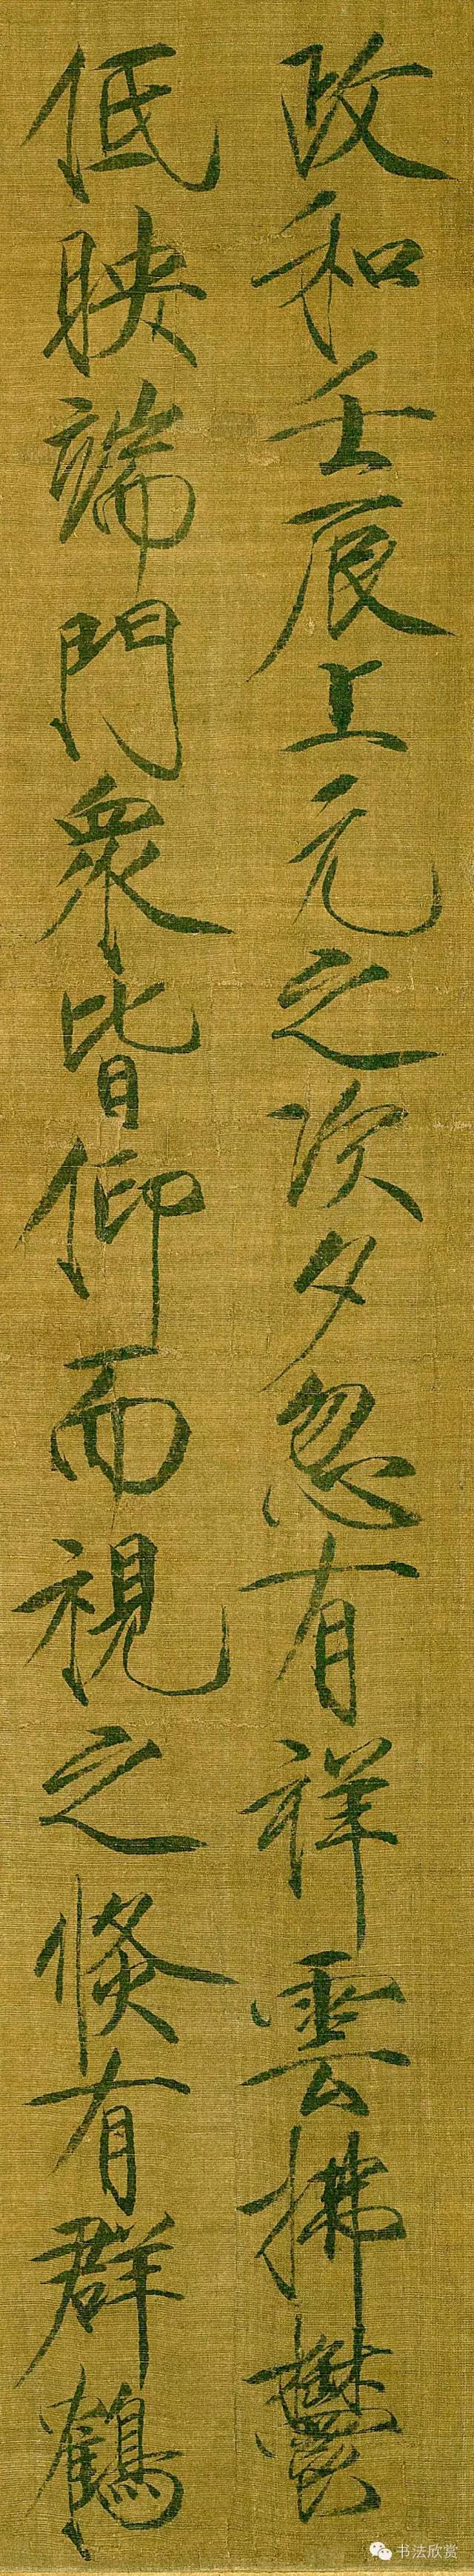 政和壬辰上元之次夕忽有祥雲拂鬱
低映端門衆皆仰而視之倐有群鶴
书法欣赏